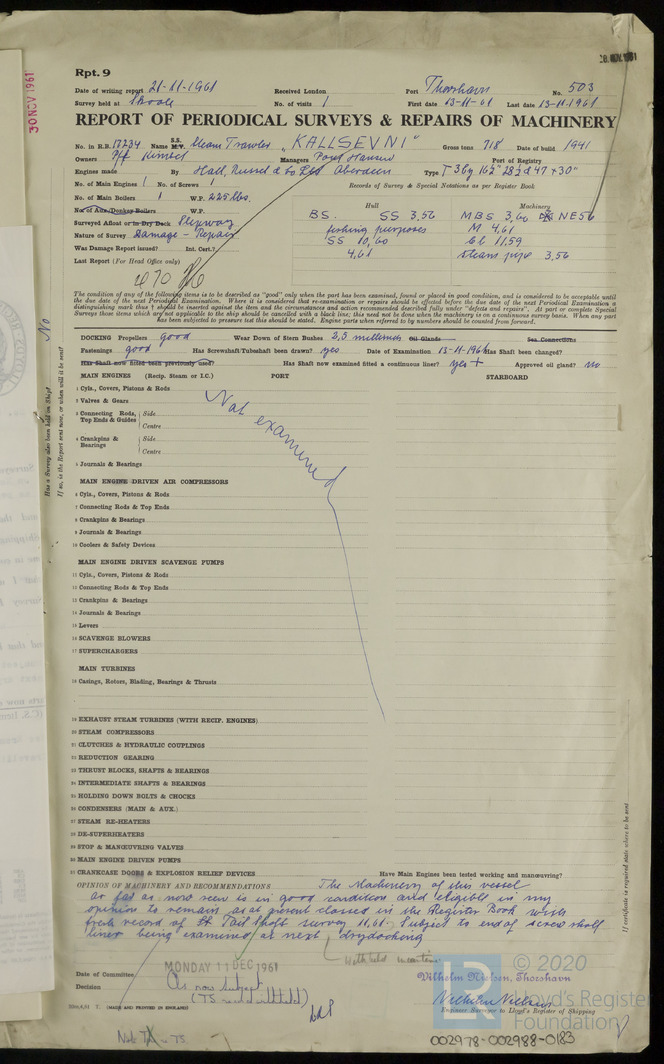 Rpt. 9
30 NOV 1961
Date of writing report 21-11-1961 Received London Port Thorshavn No. 503
Survey held at Skaale No. of visits 1 First date 13-11-61 Last date 13-11-1961
REPORT OF PERIODICAL SURVEYS & REPAIRS OF MACHINERY
No. in R.B. 17234 Name S.S. M.V. Steam Trawler "KALLSEVNI" Gross tons 718 Date of build 1941
Owners Managers Port of Registry
Engines made By Hall, Russel & Co Ltd Aberdeen Type
No. of Main Engines 1 No. of Screws 1 Records of Survey & Special Notations as per Register Book
No. of Main Boilers 1 W.P. 225 lbs. Hull Machinery
No. of Aux./Donkey Boilers W.P. BS. SS 3,56 MBS 3,60 NE56
Surveyed Afloat or in Dry Dock Slipway fishing purposes M 4,61
Nature of Survey Damage - Repair SS 10,60 Cl 11,59
Was Damage Report issued? Int. Cert.? 4,61 Steam pipe 3,56
Last Report (For Head Office only)
The condition of any of the following items is to be described as "good" only when the part has been examined, found or placed in good condition, and is considered to be acceptable until
the due date of the next Periodical Examination. Where it is considered that re-examination or repairs should be effected before the due date of the next Periodical Examination a
distinguishing mark thus † should be inserted against the item and the circumstances and action recommended described fully under "defects and repairs". At part or complete Special
Surveys those items which are not applicable to the ship should be cancelled with a black line; this need not be done when the machinery is on a continuous survey basis. When any part
has been subjected to pressure test this should be stated. Engine parts when referred to by numbers should be counted from forward.
DOCKING Propellers good Wear Down of Stern Bushes 2,3 millimeter Oil Glands Sea Connections
Fastenings good Has Screwshaft/Tubeshaft been drawn? yes Date of Examination 13-11-1961 Has Shaft been changed?
Has Shaft now fitted been previously used? Has Shaft now examined fitted a continuous liner? yes + Approved oil gland? no
MAIN ENGINES (Recip. Steam or I.C.) PORT STARBOARD
1 Cyls., Covers, Pistons & Rods
2 Valves & Gears
3 Connecting Rods, Top Ends & Guides Side
Centre
4 Crankpins & Bearings Side
Centre
Not examined
5 Journals & Bearings
MAIN ENGINE DRIVEN AIR COMPRESSORS
6 Cyls., Covers, Pistons & Rods
7 Connecting Rods & Top Ends
8 Crankpins & Bearings
9 Journals & Bearings
10 Coolers & Safety Devices
MAIN ENGINE DRIVEN SCAVENGE PUMPS
11 Cyls., Covers, Pistons & Rods
12 Connecting Rods & Top Ends
13 Crankpins & Bearings
14 Journals & Bearings
15 Levers
16 SCAVENGE BLOWERS
17 SUPERCHARGERS
MAIN TURBINES
18 Casings, Rotors, Blading, Bearings & Thrusts
19 EXHAUST STEAM TURBINES (WITH RECIP. ENGINES)
20 STEAM COMPRESSORS
21 CLUTCHES & HYDRAULIC COUPLINGS
22 REDUCTION GEARING
23 THRUST BLOCKS, SHAFTS & BEARINGS
24 INTERMEDIATE SHAFTS & BEARINGS
25 HOLDING DOWN BOLTS & CHOCKS
26 CONDENSERS (MAIN & AUX.)
27 STEAM RE-HEATERS
28 DE-SUPERHEATERS
29 STOP & MANŒUVRING VALVES
30 MAIN ENGINE DRIVEN PUMPS
31 CRANKCASE DOORS & EXPLOSION RELIEF DEVICES Have Main Engines been tested working and manœuvring?
OPINION OF MACHINERY AND RECOMMENDATIONS The Machinery of this vessel
as far as now seen is in good condition and eligible in my
opinion to remain as at present classed in the Register Book with
fresh record of Tail Shaft survey 11,61. Subject to end of screw shaft
liner being examined at next drydocking
Date of Committee MONDAY 11 DEC 1961
Decision As now subject
(TS record withheld)
Vilhelm Nielsen, Thorshavn
Vilhelm Nielsen
Engineer Surveyor to Lloyd's Register of Shipping
(MADE AND PRINTED IN ENGLAND)
Has a Survey also been held on Ship? No
If so, is the Report sent now, or when will it be sent?
If certificate is required state where to be sent
© 2020
Lloyd's Register
Foundation
002978-002988-0183